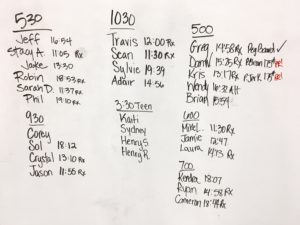 530
Jeff 16:54
Stacy A. 11:05 Rx
Jake 13:30
Robin 18:53 Rx
Sarah D. 11:37 Rx
Phil 19:10 Rx
930
Corey
Sol 18:12
Crystal 13:10 Rx
Jason 11:55 Rx
1030
Travis 12:00 Rx
Sean 11:30 Rx
Sylvie 19:39
Adair 14:56
3:30 Teen
Kaiti
Sydney
Henry S.
Henry R.
500
Greg 14:58 Rx Peg Board ✓
15:25 Rx PR!
Kris 13:17 Rx PR!
Wendy
Brian 15:59
600
Mike L. 11:30 Rx
Jamie 12:47
Laura 14:53 Rx
700
Kendra 18:07
Ryan 14:58 Rx
Cameron 18:44 Rx